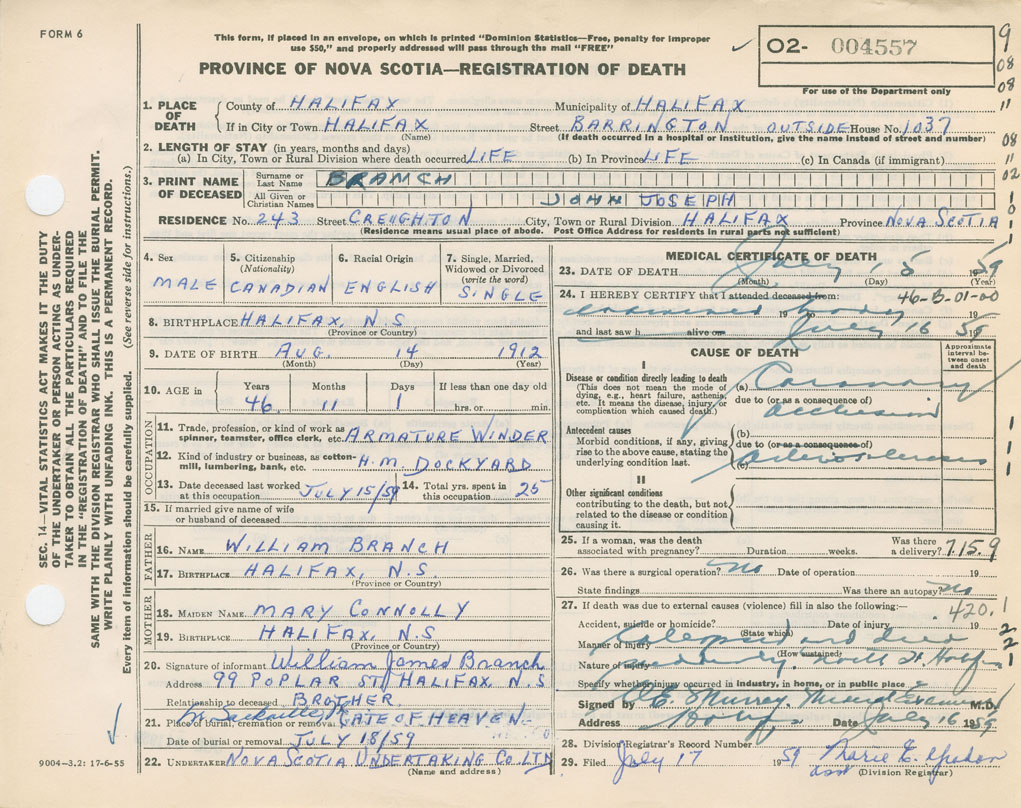 FORM 6
This form, if placed in an envelope, on which is printed "Dominion Statistics—Free, penalty for improper
use $50," and properly addressed will pass through the mail "FREE"
O2- 004557
For use of the Department only
PROVINCE OF NOVA SCOTIA—REGISTRATION OF DEATH
SEC. 14—VITAL STATISTICS ACT MAKES IT THE DUTY
OF THE UNDERTAKER OR PERSON ACTING AS UNDER-
TAKER TO OBTAIN ALL THE PARTICULARS REQUIRED
IN THE "REGISTRATION OF DEATH" AND TO FILE THE
SAME WITH THE DIVISION REGISTRAR WHO SHALL ISSUE THE BURIAL PERMIT.
WRITE PLAINLY WITH UNFADING INK. THIS IS A PERMANENT RECORD.
Every item of information should be carefully supplied. (See reverse side for instructions.)
1. PLACE OF DEATH
County of HALIFAX Municipality of HALIFAX
If in City or Town HALIFAX Street BARRINGTON OUTSIDE House No. 1037
(Name) (If death occurred in a hospital or institution, give the name instead of street and number)
2. LENGTH OF STAY (in years, months and days)
(a) In City, Town or Rural Division where death occurred LIFE (b) In Province LIFE (c) In Canada (if immigrant)
3. PRINT NAME OF DECEASED
Surname or Last Name BRANCH
All Given or Christian Names JOHN JOSEPH
RESIDENCE No. 243 Street CREIGHTON City, Town or Rural Division HALIFAX Province NOVA SCOTIA
(Residence means usual place of abode. Post Office Address for residents in rural parts not sufficient)
4. Sex MALE
5. Citizenship (Nationality) CANADIAN
6. Racial Origin ENGLISH
7. Single, Married, Widowed or Divorced (write the word) SINGLE
8. BIRTHPLACE HALIFAX, N.S.
(Province or Country)
9. DATE OF BIRTH AUG. 14 1912
(Month) (Day) (Year)
10. AGE in Years 46 Months 11 Days 1 If less than one day old hrs. or min.
OCCUPATION
11. Trade, profession, or kind of work as spinner, teamster, office clerk, etc. ARMATURE WINDER
12. Kind of industry or business, as cotton-mill, lumbering, bank, etc. H.M. DOCKYARD
13. Date deceased last worked at this occupation JULY 15/59
14. Total yrs. spent in this occupation 25
15. If married give name of wife or husband of deceased
FATHER
16. NAME WILLIAM BRANCH
17. BIRTHPLACE HALIFAX, N.S.
(Province or Country)
MOTHER
18. MAIDEN NAME MARY CONNOLLY
19. BIRTHPLACE HALIFAX, N.S
(Province or Country)
20. Signature of informant William James Branch
Address 99 POPLAR ST, HALIFAX, N.S.
Relationship to deceased BROTHER.
21. Place of burial, cremation or removal GATE OF HEAVEN
Date of burial or removal JULY 18/59
22. UNDERTAKER NOVA SCOTIA UNDERTAKING CO. LTD
(Name and address)
9004-3.2: 17-6-55
MEDICAL CERTIFICATE OF DEATH
23. DATE OF DEATH July 15 1959
(Month) (Day) (Year)
24. I HEREBY CERTIFY that I attended deceased from: 46-5-01-00
examined body 19 to
and last saw h alive on July 16 1959
CAUSE OF DEATH
Approximate interval between onset and death
I
Disease or condition directly leading to death
(This does not mean the mode of dying, e.g., heart failure, asthenia, etc. It means the disease, injury, or complication which caused death.)
(a) Coronary
due to (or as a consequence of)
occlusion
Antecedent causes
Morbid conditions, if any, giving rise to the above cause, stating the underlying condition last.
(b)
due to (or as a consequence of)
(c) Arteriosclerosis
II
Other significant conditions
contributing to the death, but not related to the disease or condition causing it.
25. If a woman, was the death associated with pregnancy? Duration weeks. Was there a delivery? 7.15.9
26. Was there a surgical operation? no Date of operation 19
State findings Was there an autopsy? no
27. If death was due to external causes (violence) fill in also the following:— 420.1
Accident, suicide or homicide? Date of injury 19
(State which)
Manner of injury Collapsed and died
(How sustained)
Nature of injury suddenly
Specify whether injury occurred in industry, in home, or in public place
Signed by Murray M.D.
Address Date July 16 1959
28. Division Registrar's Record Number
29. Filed July 17 1959 Marie E.
(Division Registrar)